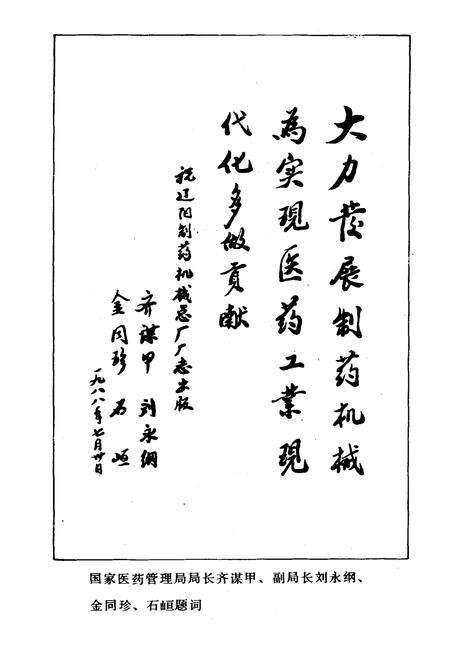 大力发展制药机械
為实现医药工業现
代化多做贡献
祝辽阳制药机械总厂厂志出版
齐谋甲 刘永纲
金同珍 石峘
一九八八年七月廿日
国家医药管理局局长齐谋甲、副局长刘永纲、
金同珍、石峘题词